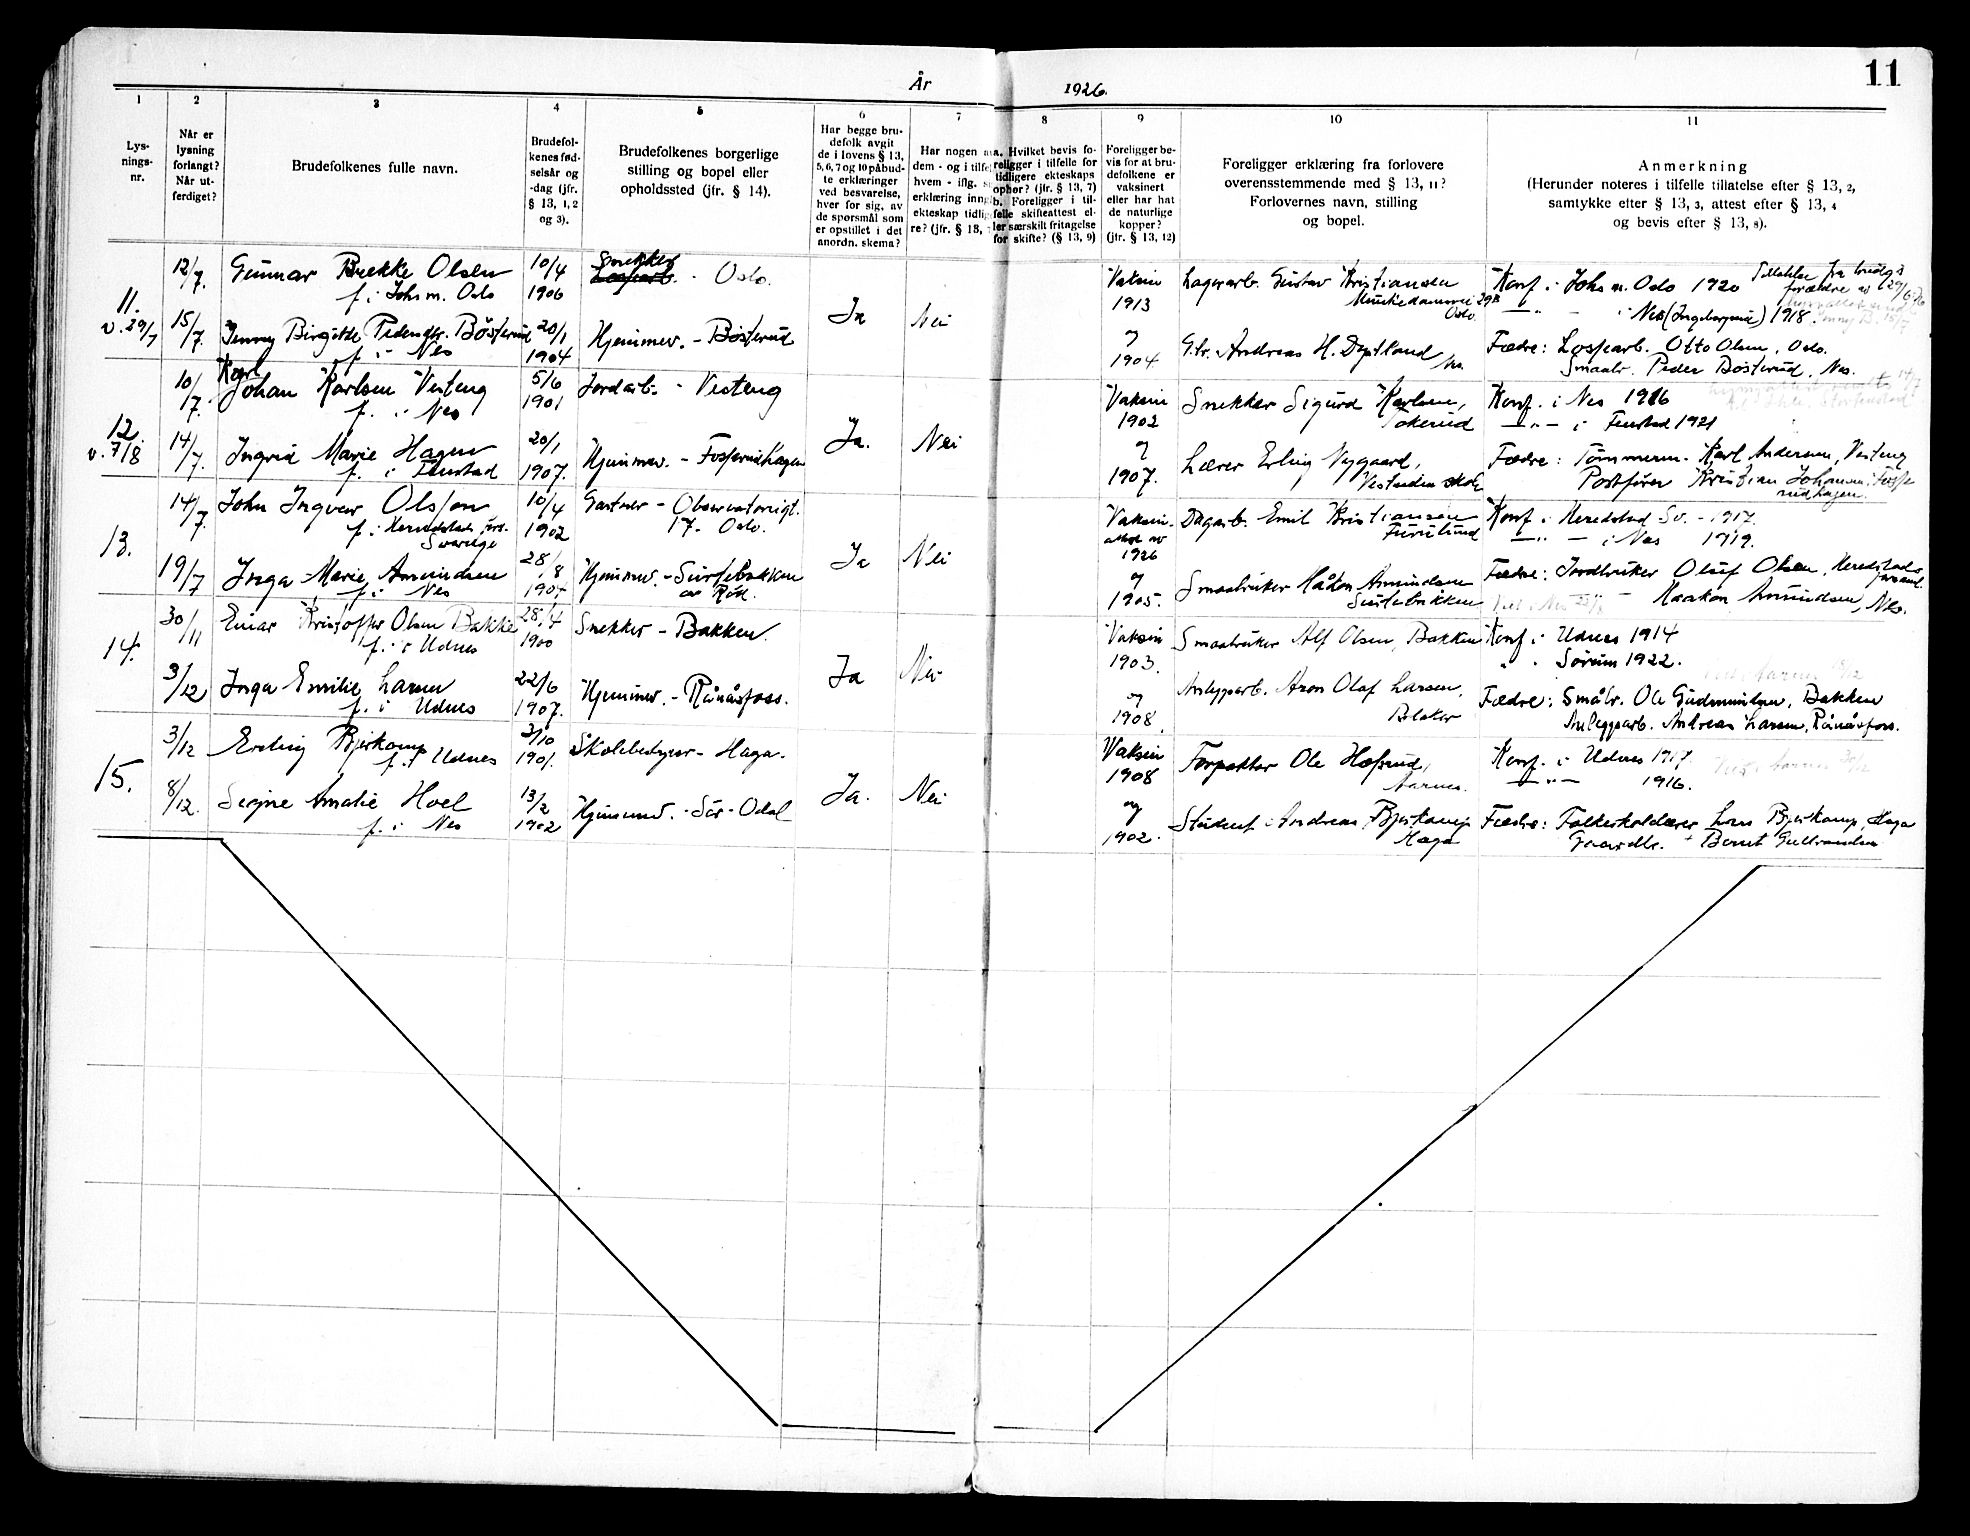 År 1926.
11
1
Lys-
nings-
nr.
2
Når er
lysning
forlangt?
Når ut-
ferdiget?
3
Brudefolkenes fulle navn.
4
Brudefol-
kenes fød-
selsår og
-dag (jfr.
§ 13, 1, 2
og 3).
5
Brudefolkenes borgerlige
stilling og bopel eller
opholdssted (jfr. § 14).
6
Har begge bru-
defolk avgit
de i lovens § 13,
5, 6, 7 og 10 påbud-
te erklæringer
ved besvarelse,
hver for sig, av
de spørsmål som
er opstillet i det
anordn. skema?
7
Har nogen
dem - og i tilfe
hvem - iflg.
erklæring inng
ekteskap tidlig
re? (jfr. § 13,
8
a. Hvilket bevis fo-
religger i tilfelle for
tidligere ekteskaps
ophør? (jfr. § 13, 7)
b. Foreligger i til-
felle skifteattest el-
ler særskilt fritagelse
for skifte? (§ 13, 9)
9
Foreligger be-
vis for at bru-
defolkene er
vaksinert
eller har hat
de naturlige
kopper?
(jfr. § 13, 12)
10
Foreligger erklæring fra forlovere
overensstemmende med § 13, 11?
Forlovernes navn, stilling
og bopel.
11
Anmerkning
(Herunder noteres i tilfelle tillatelse efter § 13, 2,
samtykke efter § 13, 3, attest efter § 13, 4
og bevis efter § 13, 8).
11.
v. 29/7
12/7.
Gunnar Brekke Olsen
f. i Johs m. Oslo
10/4
1906
Snekker
- Oslo.
15/7.
Jenny Birgitte Pedersdtr. Bösterud
f. i Nes
20/1
1904
Hjemmev. - Bösterud
Ja
Nei
Vaksin
1913
og
1904
Lagerarb. Gustav Kristiansen
Munkedammsvei 29B
Oslo.
G.br. Andreas H. Dystland
Konf. i Johs m. Oslo 1920
Nes (Ingeborgrud) 1918.
Fædre: Losjearb. Otto Olsen, Oslo.
Smaabr. Peder Bösterud, Nes.
12
v. 7/8
10/7.
Karl
Johan Karlsen Vesteng
f. i Nes
5/6
1901
Jordarb. - Vesteng
14/7.
Ingrid Marie Hagen
f. i Fenstad
20/1
1907.
Hjemmev. - Fosserudhagen
Ja.
Nei
Vaksin
1902
og
1907.
Snekker Sigurd Karlsen,
Tokerud
Lærer Erling Nygaard,
Konf. i Nes 1916
—"— i Fenstad 1921
Fædre: Tömmerm. Karl Andersen, Vesteng
Postfører Kristian Johansen, Fosse
rudhagen.
13.
14/7.
John Ingvar Olsson
f. i Heredstads förs.
Sverige
10/4
1902
Gartner - Observatoriegt.
17. Oslo.
19/7
Inga Marie Amundsen
f. i Nes
28/8
Hjemmev. - Surtebakken
Ja
Nei
Vaksin.
1926
og
1905.
Dagarb. Emil Kristiansen
Furulund
Smaabruker Håkon Amundsen
Surtebakken
Konf. i Heredstad Sv. - 1917.
—"— i Nes 1919.
Fædre: Jordbruker Olof Olsen, Heredstads
Haakon Amundsen, Nes.
14.
30/11
Einar Kristoffer Olsen Bakke
f. i Udnes
28/4
1900
Snekker - Bakken.
3/12
Inga Emilie Larsen
f. i Udnes
22/6
1907.
Hjemmev. - Rånåsfoss.
Ja
Nei
Vaksin
1903.
og
1908
Smaabruker Alf Olsen, Bakken
Anleggsarb. Aron Olaf Larsen,
Blaker
Konf. i Udnes 1914
" " Sørum 1922.
Fædre: Småbr. Ole Gudmundsen, Bakken
Anleggsarb. Andreas Larsen, Rånåsfoss.
15.
3/12
Erling Bjerkamp
f. i Udnes
3/10
1901.
Skolebestyrer - Haga.
8/12.
Signe Amalie Hoel
f. i Nes
13/2
1902
Hjemmev. - Sör-Odal
Ja.
Nei
Vaksin
1908
og
1902.
Forpakter Ole Hofsrud,
Aarnes.
Student Andreas Bjerkamp
Haga
Konf. i Udnes 1917.
—"— 1916.
Fædre: Folkeskolelærer Lars Bjerkamp, Haga
Gaardbr. Bernt Gulbrandsen